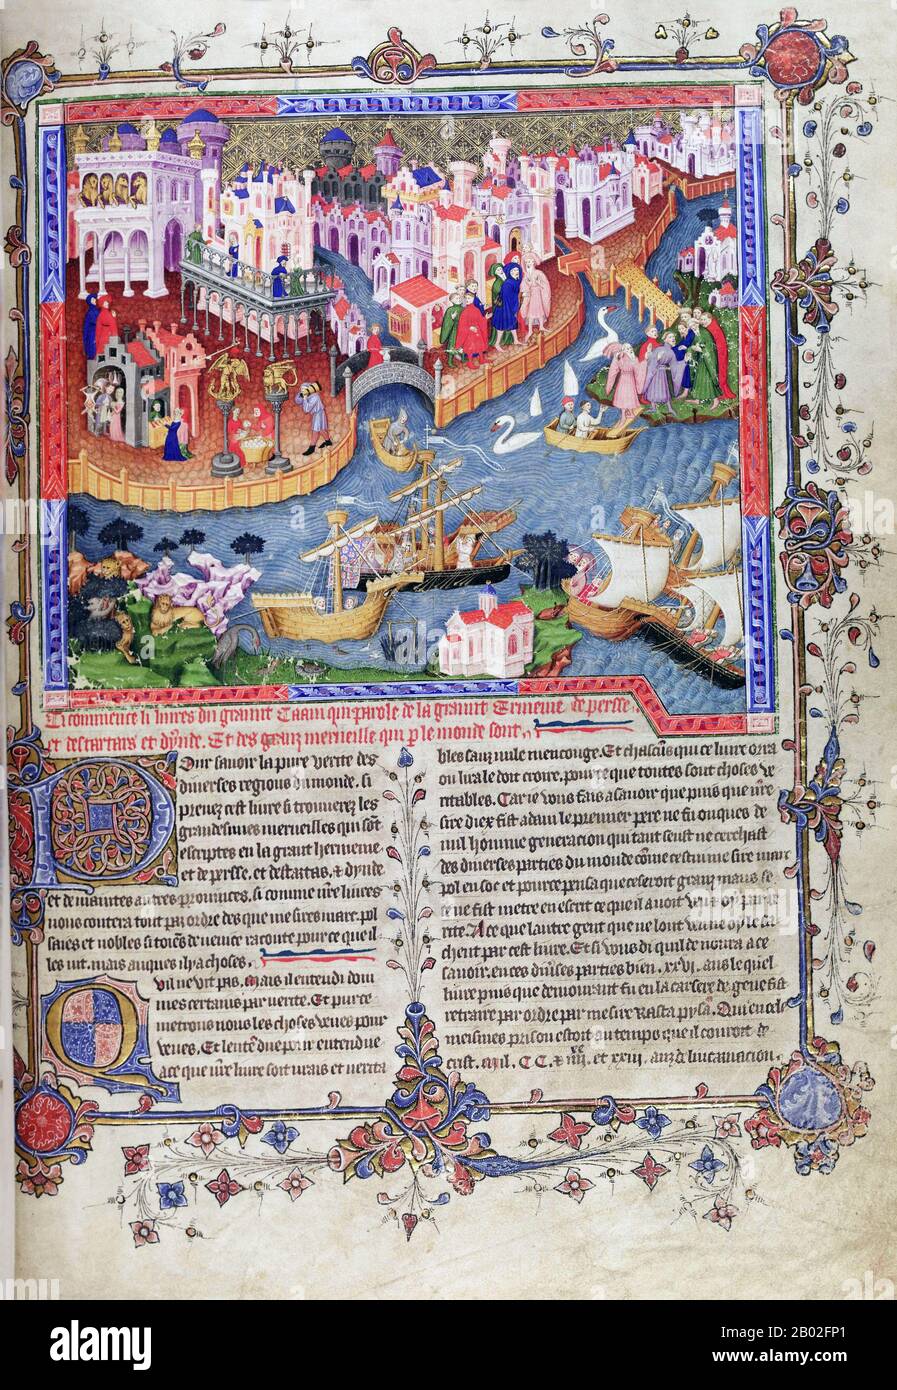 Ci commence li livres du graunt Caam qui parole de la graunt Ermenie de persse
et des tartars et dynde. Et des granz merueille qui p le monde sont.
Pour sauoir la pure verite des
diuerses regions du monde. si
prenez cest liure si trouuerez les
grandesimes merueilles qui sōt
escriptes en la grant hermenie
et de persse. et des tartas. a dynde
et de maintes autres prouinces. si comme nr̄e liures
nous contera tout par ordre des que me sires marc. pol
saies et nobles citoiēs de uenice raconte pour ce que il
les uit. mais auques il y a choses.
Quil ne vit pas. mais il entendi dou
mes certains par verite. Et pur ce
metrons nous les choses veues pour
veues. Et lentēdue pour entendue
a ce que nr̄e liure soit urais et verita
bles sanz nule mencouge. Et chascūs qui ce liure orra
ou lira le doit croire. pour ce que toutes sont choses ve
ritables. Car ie vous fais a sauoir que puis que nr̄e
sire diex fist adam le premier pere ne fu onques de
nul homme generacion qui tant seust ne cerchast
des diuerses parties du monde cōme cestui me sire marc
pol en sot et pour ce pensa que ce seroit granz maus se
se ne fist metre en escrit ce que il auoit veu oy par ve
rite. A ce que lautre gent que ne lont veue oy le sa
chent par cest liure. Et si vous di qu il demora a ce
sauoir. en ces diuses parties bien .xxvi. ans le quel
liure puis que demourant fu en la carsere de gene fist
retraire par ordre par mesire Rasta pysan. Qui en cele
meismes prison estoit au temps que il couroit de
crist. Mil. CC. et ans de lincarnacion.
alamy
alamy
a
Image ID: 2B02FP1
www.alamy.com